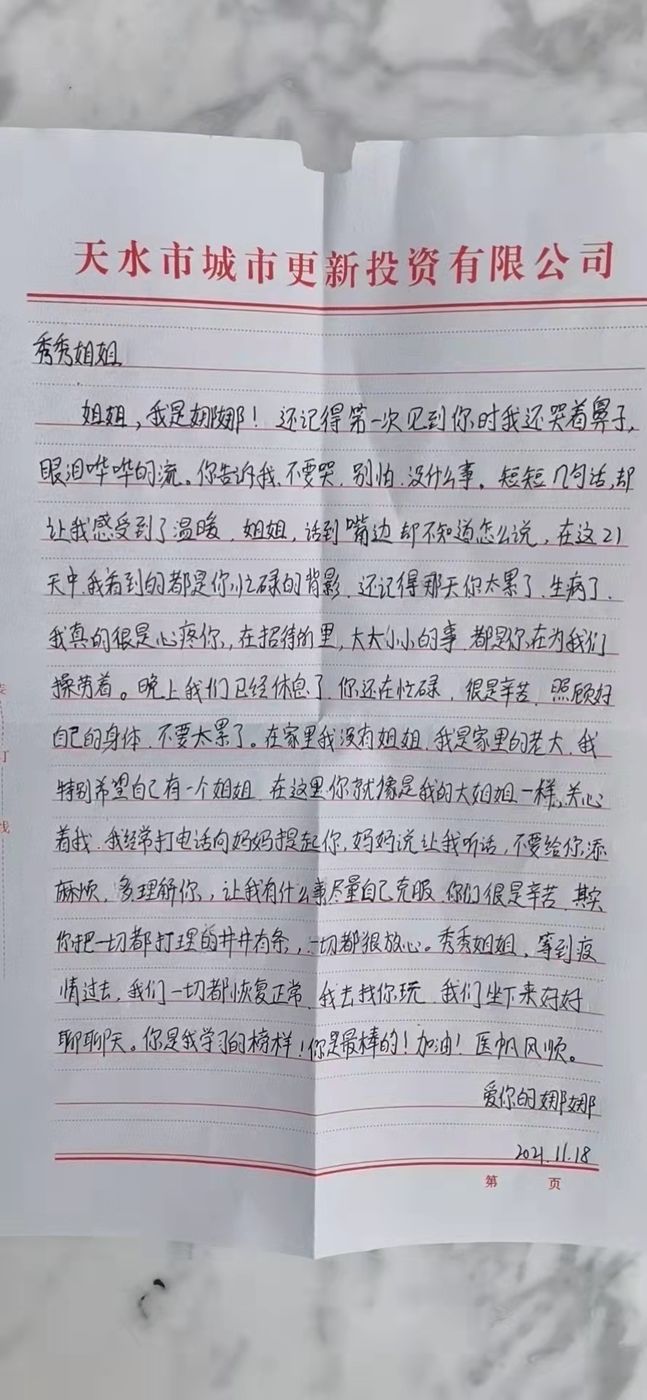 天水市城市更新投资有限公司
秀秀姐姐
姐姐，我是娜娜！还记得第一次见到你时我还哭着鼻子，
眼泪哗哗的流。你告诉我，不要哭，别怕，没什么事。短短几句话，却
让我感受到了温暖，姐姐，话到嘴边却不知道怎么说，在这21
天中，我看到的都是你忙碌的背影，还记得那天你太累了，生病了，
我真的很是心疼你，在招待所里，大大小小的事，都是你在为我们
操劳着。晚上我们已经休息了，你还在忙碌，很是辛苦，照顾好
自己的身体，不要太累了。在家里我没有姐姐，我是家里的老大，我
特别希望自己有一个姐姐，在这里你就像是我的大姐姐一样，关心
着我，我经常打电话向妈妈提起你，妈妈说让我听话，不要给你添
麻烦，多理解你，让我有什么事尽量自己克服，你们很是辛苦，其实
你把一切都打理的井井有条，一切都很放心。秀秀姐姐，等到疫
情过去，我们一切都恢复正常，我去找你玩，我们坐下来好好
聊聊天。你是我学习的榜样！你是最棒的！加油！医帆风顺。
爱你的娜娜
2021.11.18
第 页
订
线